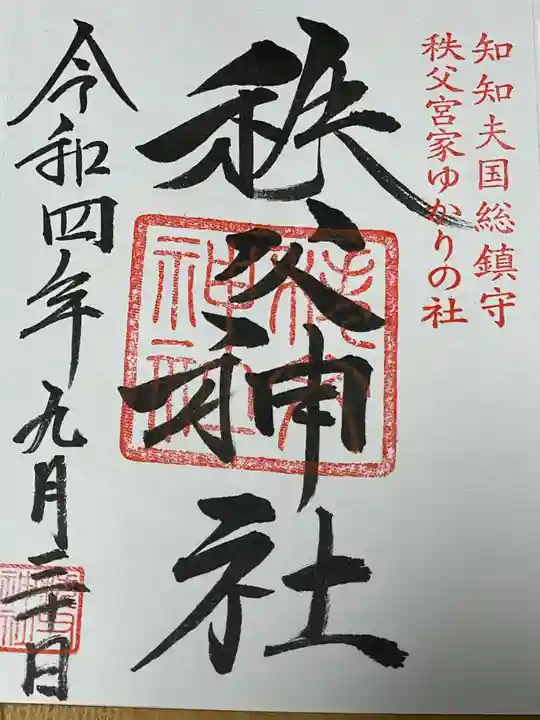 知知夫国総鎮守
秩父宮家ゆかりの社
秩父神社
令和四年九月二十日